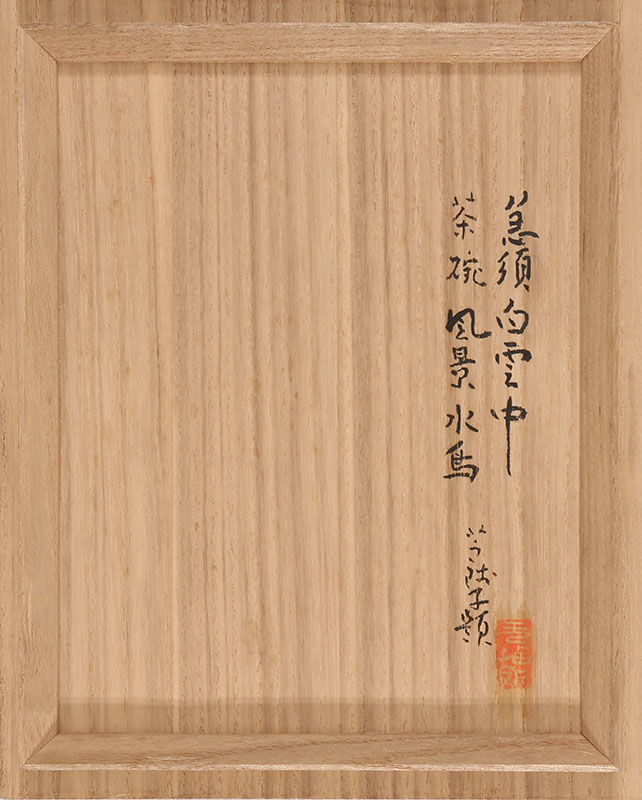 急須白雲中
茶碗風景水鳥
子題